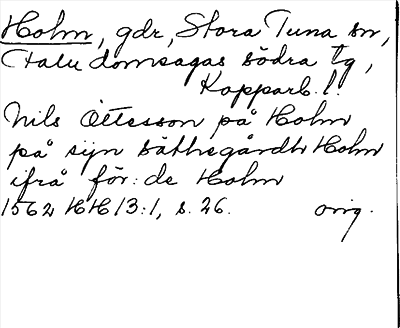 Holm, gdr, Stora Tuna sn,
Falu domsagas södra tg,
Kopparb. l.
Nils Ottesson på Holm
på sijn säthegårdh Holm
ifrå för:de Holm
1562 HH 13:1, s. 26. orig.